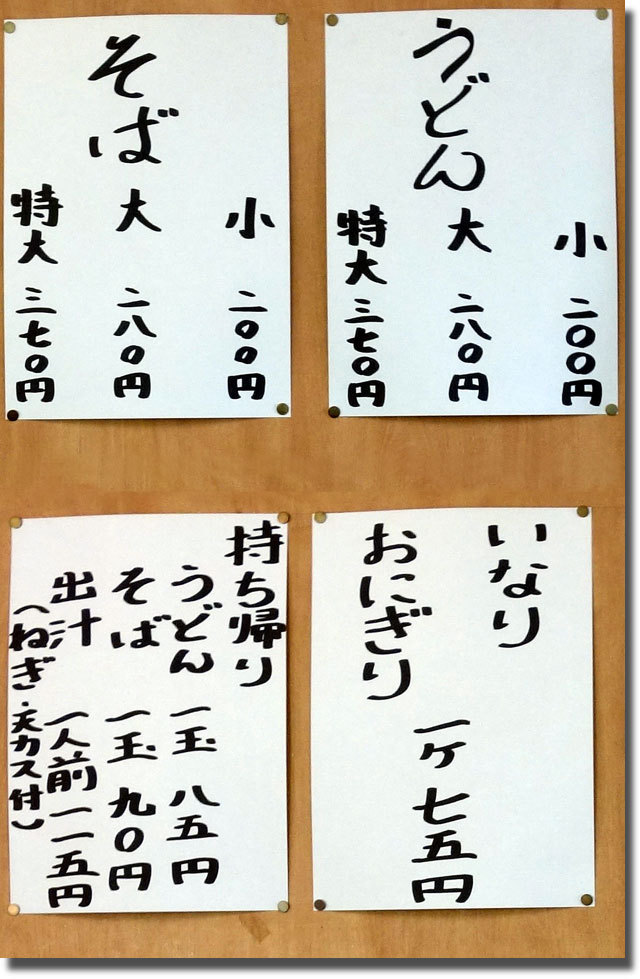 うどん
小 二〇〇円
大 二八〇円
特大 三七〇円
そば
小 二〇〇円
大 二八〇円
特大 三七〇円
いなり
おにぎり
一ケ 七五円
持ち帰り
うどん 一玉 八五円
そば 一玉 九〇円
出汁 一人前 一一五円
（ねぎ・天カス付）